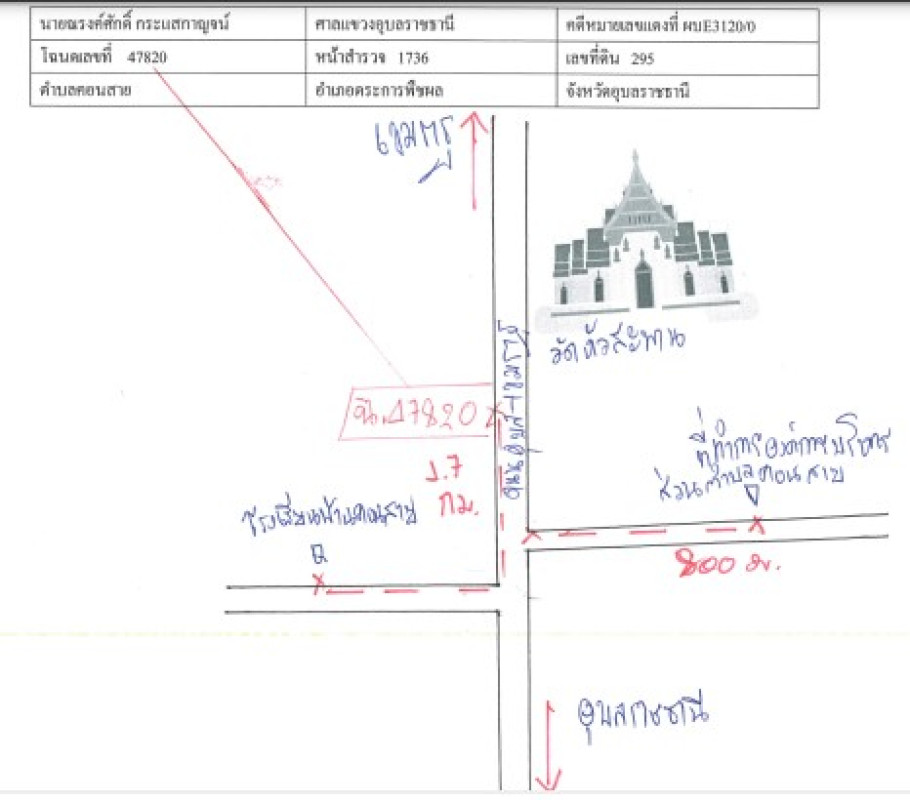 นายณรงค์ศักดิ์ กระแสกาญจน์ ศาลแขวงอุบลราชธานี คดีหมายเลขแดงที่ ผบE3120/0
โฉนดเลขที่ 47820 หน้าสำรวจ 1736 เลขที่ดิน 295
ตำบลคอนสาย อำเภอตระการพืชผล จังหวัดอุบลราชธานี
วัดหัวสะพาน
ถนนอุบล-เขมราฐ
47820
ที่ทำการองค์การบริหาร
ส่วนตำบลคอนสาย
1.7
กม.
โรงเรียนบ้านคอนสาย
800 ม.
อุบลราชธานี